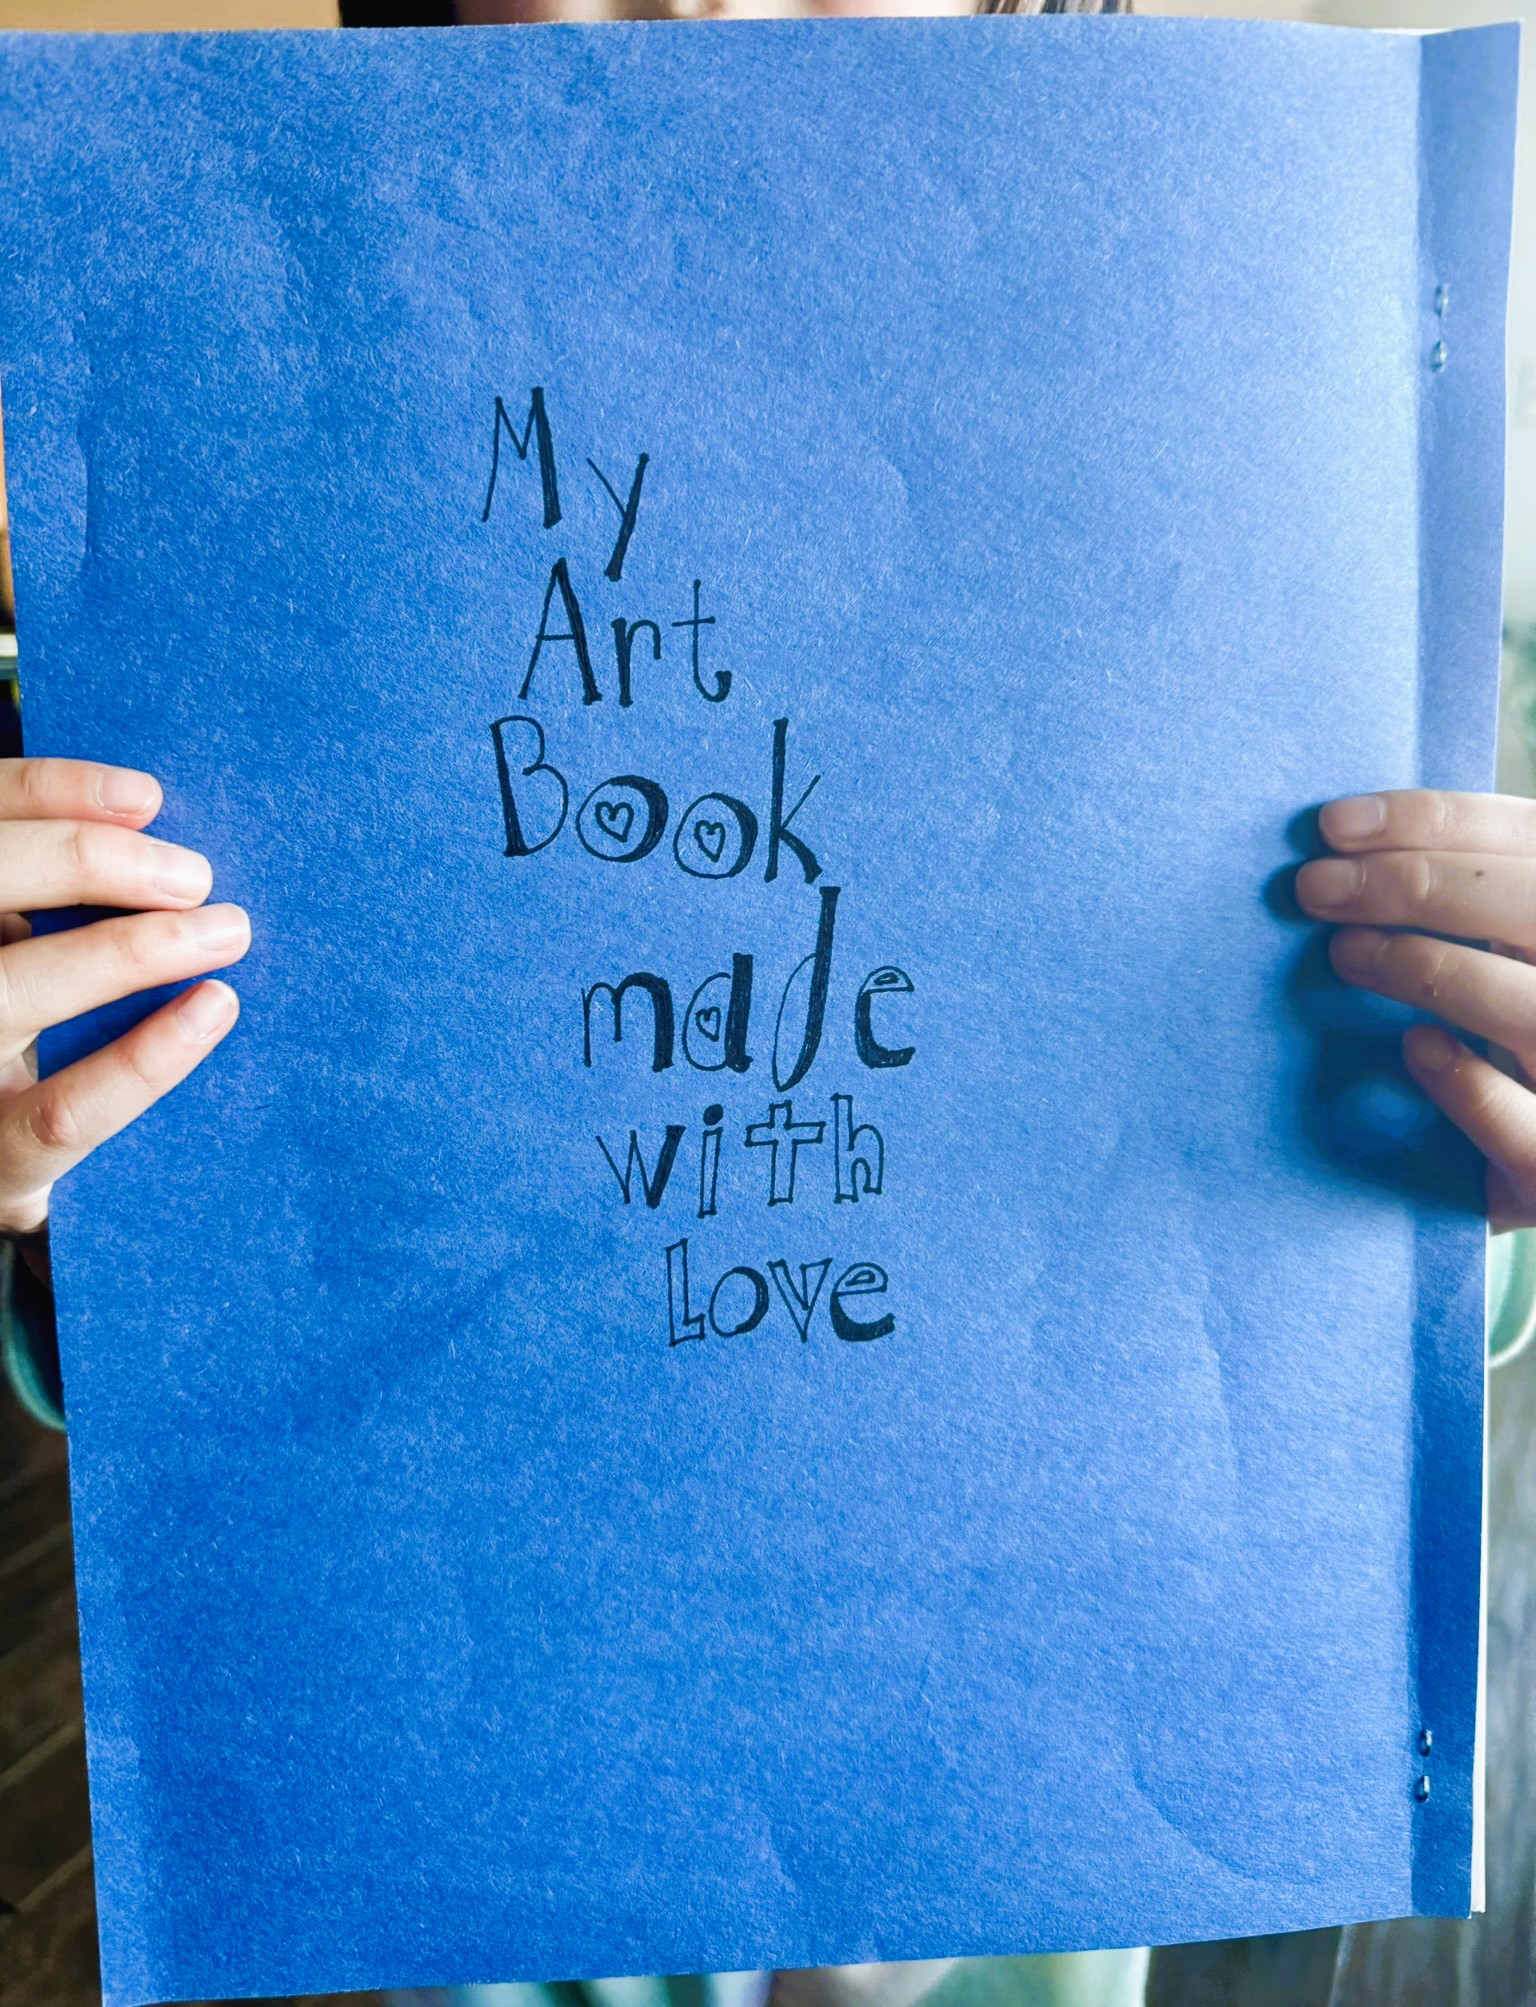 My
Art
Book
made
with
Love